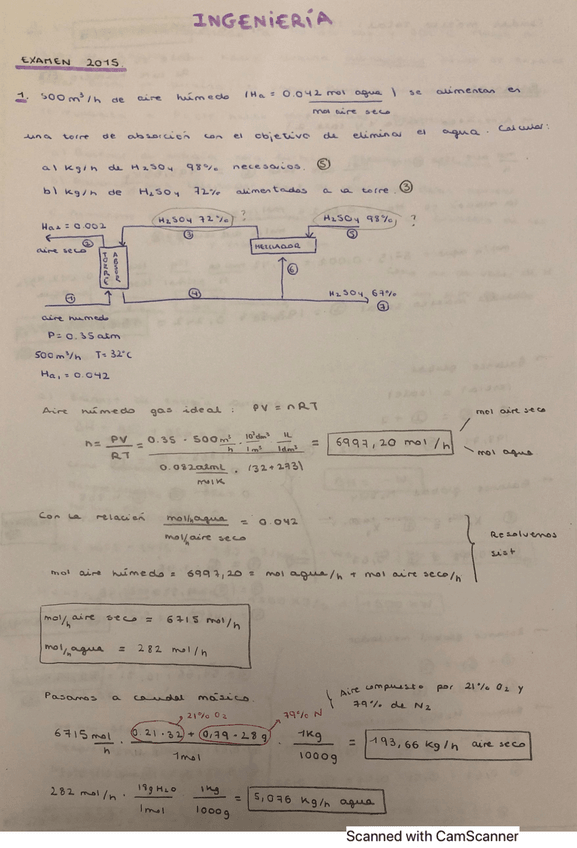 INGENIERÍA
EXAMEN 2015
1. 500 m³/h de aire húmedo (Ha = 0.042 mol agua / mol aire seco) se alimentan en
una torre de absorción con el objetivo de eliminar el agua. Calcular:
a) Kg/h de H₂SO₄ 98% necesarios. ⑤
b) Kg/h de H₂SO₄ 72% alimentados a la torre. ③
Ha₂ = 0.002
②
aire seco
H₂SO₄ 72% ?
③
H₂SO₄ 98% ?
⑤
MEZCLADOR
TORRE ABSOR
⑥
①
④
H₂SO₄ 67%
⑦
aire húmedo
P = 0.35 atm
500 m³/h T = 32°C
Ha₁ = 0.042
Aire húmedo gas ideal : PV = nRT
n = PV/RT = 0.35 · 500 m³/h · 10³dm³/1m³ · 1L/1dm³ / 0.082 atmL/molK · (32+273) = 6997,20 mol/h
mol aire seco
mol agua
Con la relación mol/h agua / mol/h aire seco = 0.042
Resolvemos sist
mol aire húmedo = 6997,20 = mol agua/h + mol aire seco/h
mol/h aire seco = 6715 mol/h
mol/h agua = 282 mol/h
Pasamos a caudal másico.
Aire compuesto por 21% O₂ y
79% de N₂
21% O₂
79% N
6715 mol/h · 0.21 · 32 + 0,79 · 28g / 1mol · 1Kg/1000g = 193,66 Kg/h aire seco
282 mol/h · 18g H₂O/1mol · 1Kg/1000g = 5,076 Kg/h agua
Scanned with CamScanner